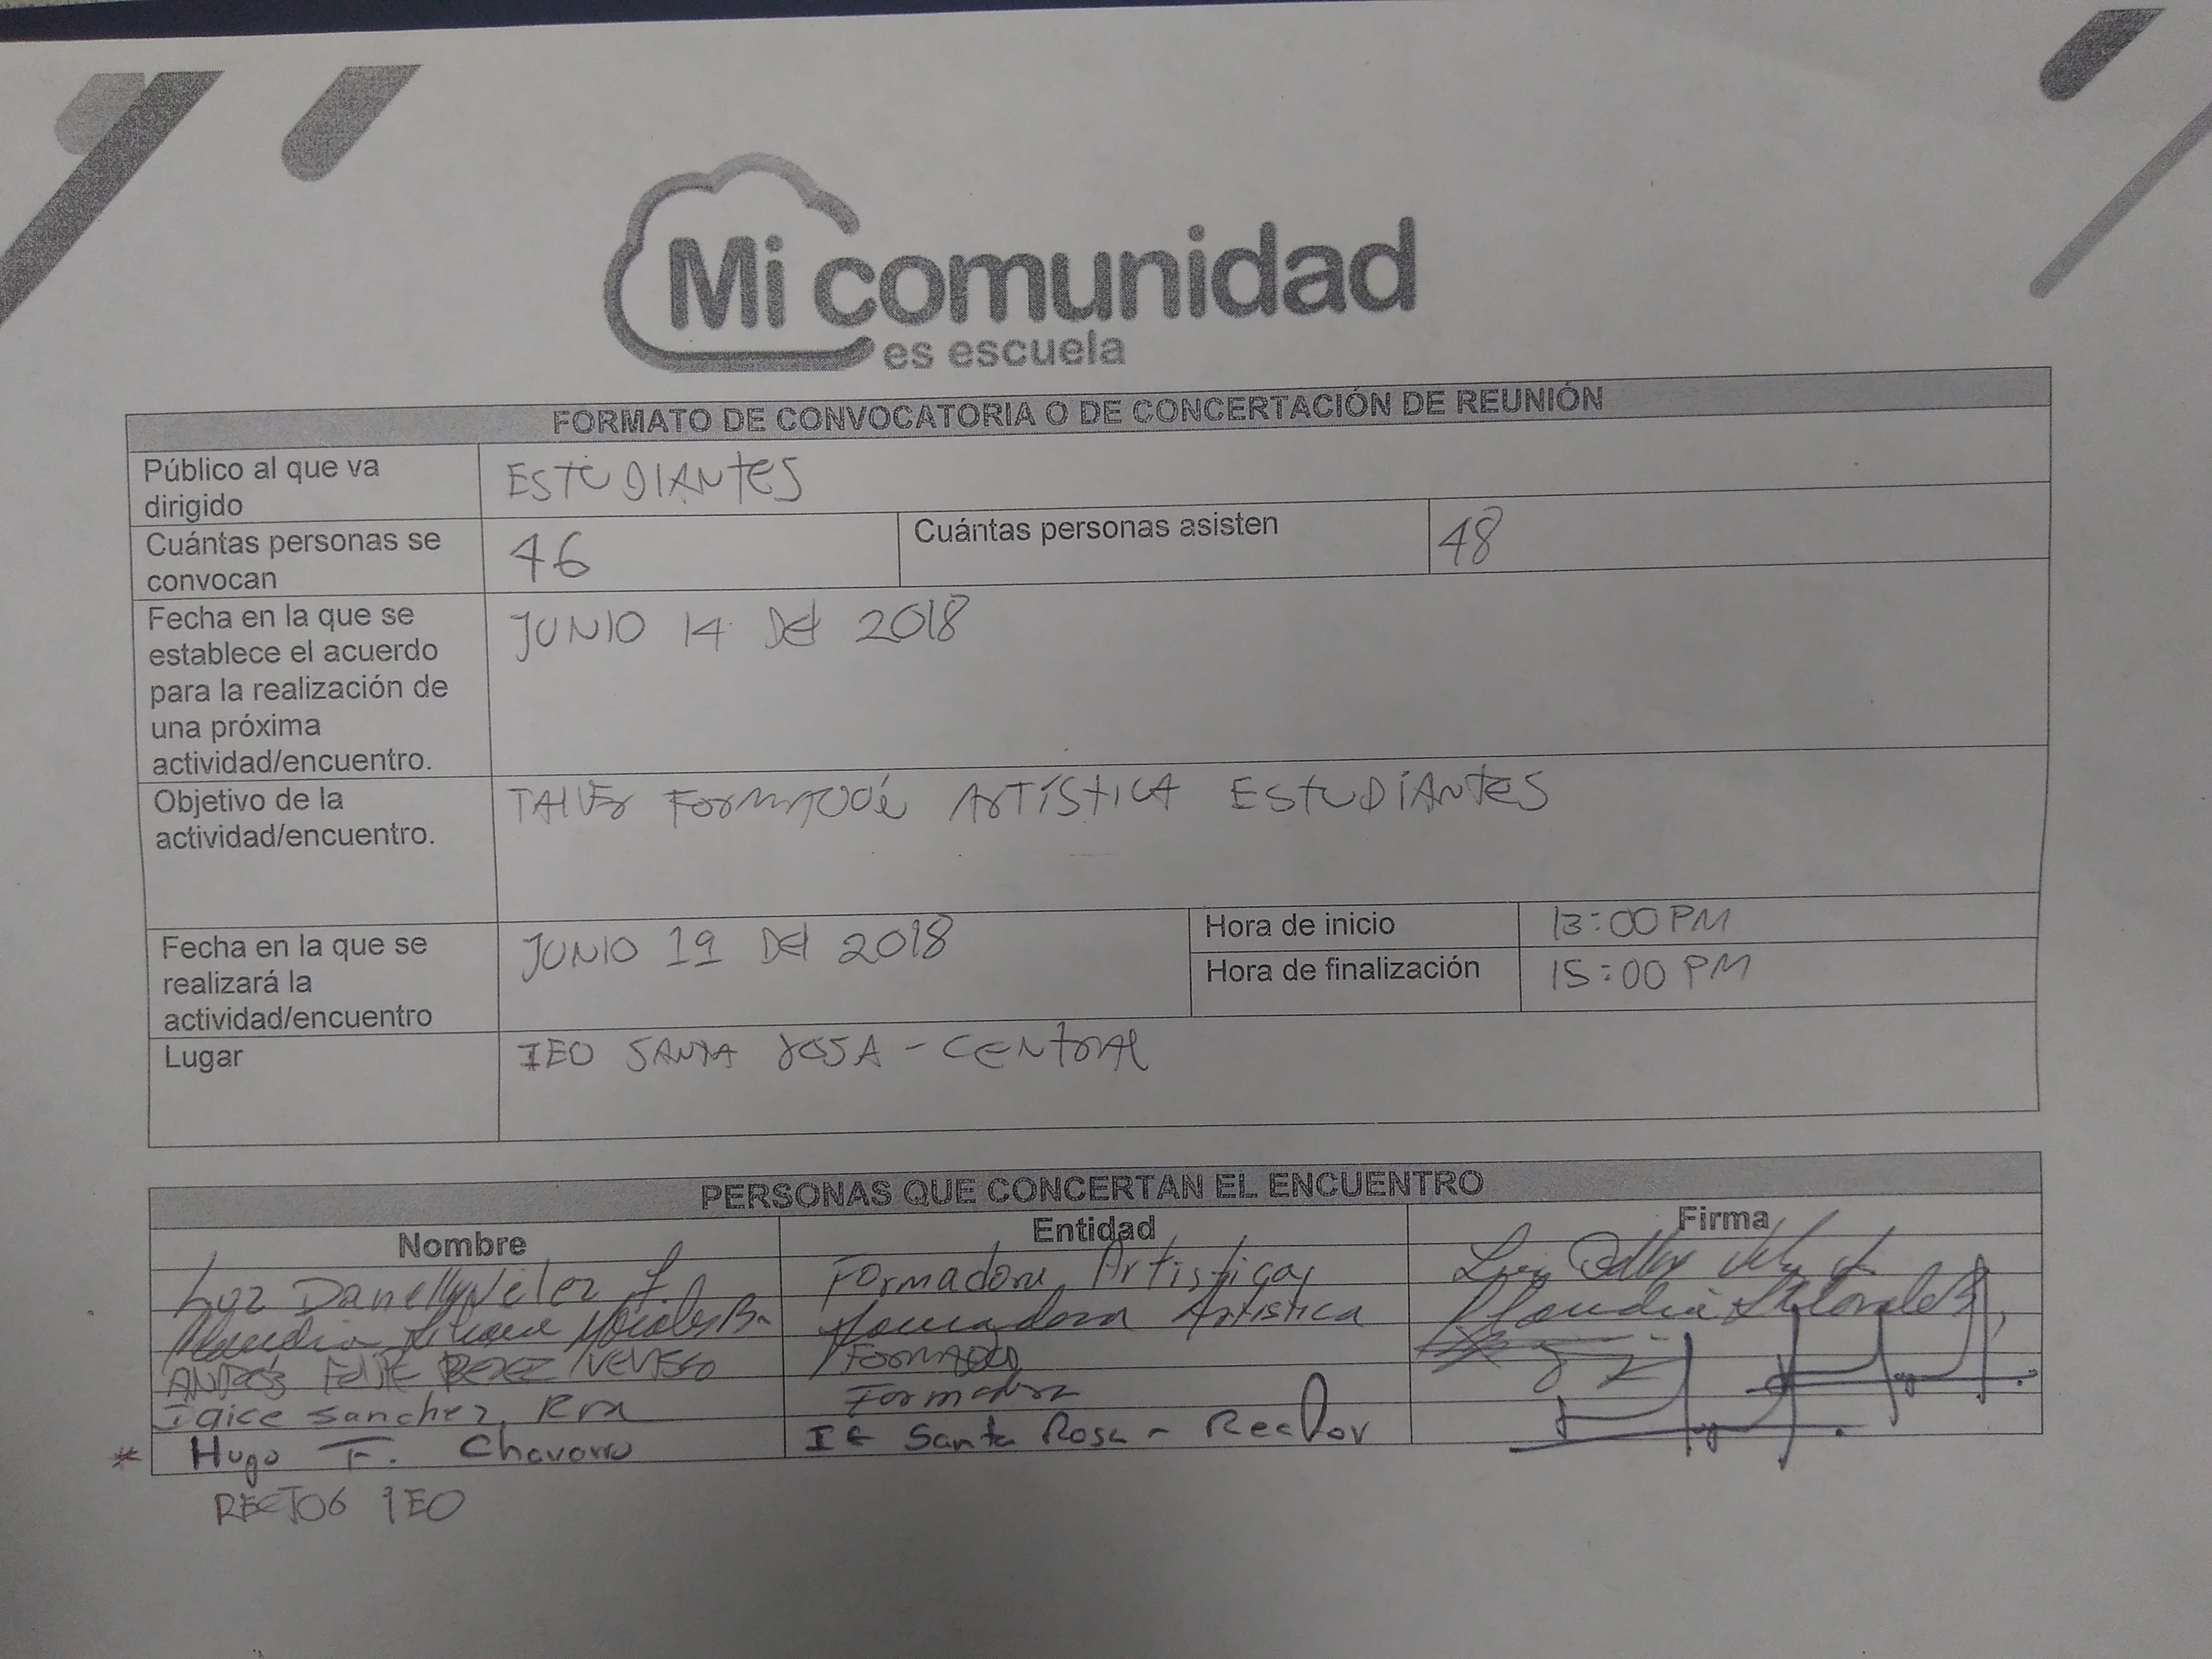 Mi comunidad
es escuela
FORMATO DE CONVOCATORIA O DE CONCERTACIÓN DE REUNIÓN
Público al que va
dirigido
ESTUDIANTES
Cuántas personas se
convocan
46
Cuántas personas asisten
48
Fecha en la que se
establece el acuerdo
para la realización de
una próxima
actividad/encuentro.
JUNIO 14 DEL 2018
Objetivo de la
actividad/encuentro.
ARTÍSTICA ESTUDIANTES
Fecha en la que se
realizará la
actividad/encuentro
JUNIO 19 DEL 2018
Hora de inicio
13:00 PM
Hora de finalización
15:00 PM
Lugar
IEO SANTA ROSA - CENTRAL
PERSONAS QUE CONCERTAN EL ENCUENTRO
Nombre
Entidad
Firma
Luz Danelly Velez
Formadora Artistica
Morales B.
Artistica
ANDRÉS FELIPE PEREZ
Formadora
Sanchez
Hugo F. Chavarro
IE Santa Rosa - Rector
* RECTOR IEO